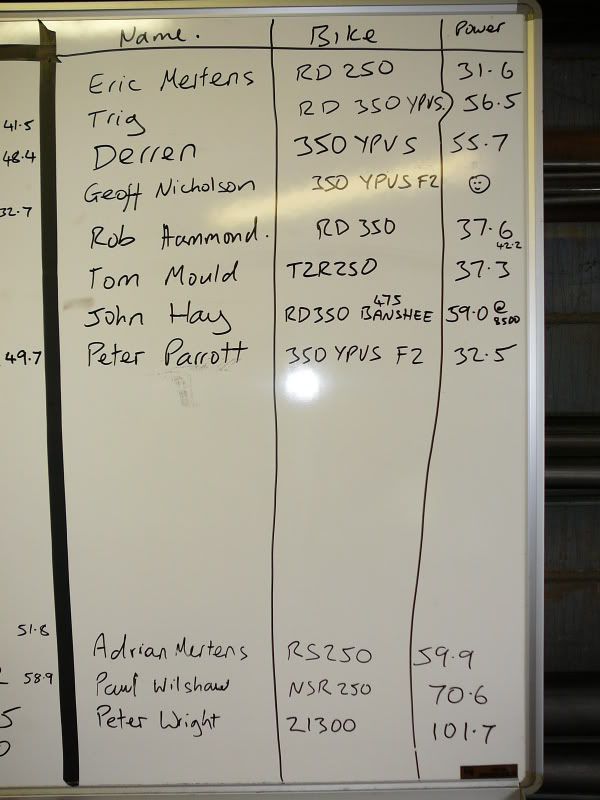 Name. Bike Power
Eric Mertens RD 250 31.6
41.5 Trig RD 350 YPVS. 56.5
48.4 Derren 350 YPVS 55.7
Geoff Nicholson 350 YPVS F2 ☺
32.7
Rob Hammond. RD 350 37.6
42.2
Tom Mould TZR250 37.3
John Hay RD350 475 BANSHEE 59.0 @ 8500
49.7 Peter Parrott 350 YPVS F2 32.5
51.8
Adrian Mertens RS250 59.9
58.9 Paul Wilshaw NSR 250 70.6
5 Peter Wright Z1300 101.7
0